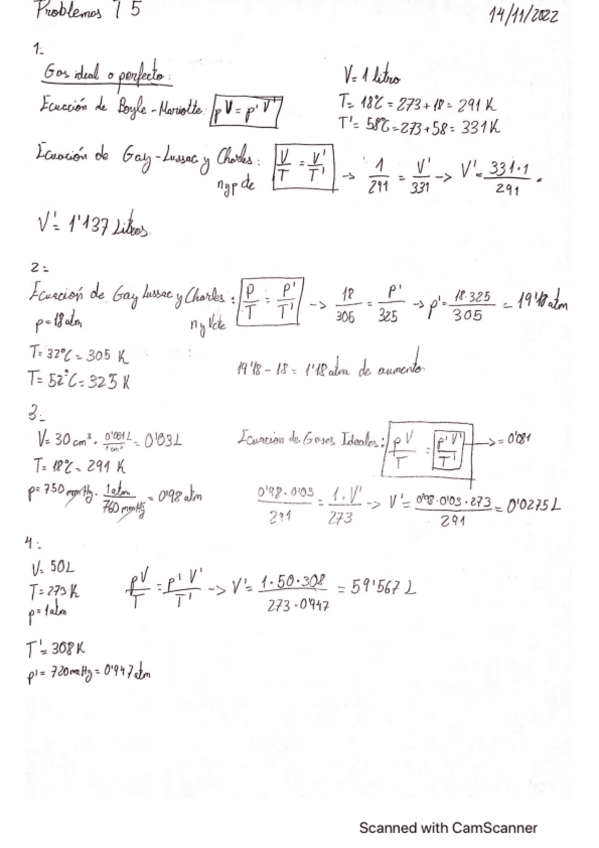 Problemas T 5
14/11/2022
1:
Gas ideal o perfecto:
Ecuación de Boyle-Mariotte: pV = p'V'
V = 1 litro
T = 18ºC = 273 + 18 = 291 K
T' = 58ºC = 273 + 58 = 331 K
Ecuación de Gay-Lussac y Charles: V/T = V'/T' → 1/291 = V'/331 → V' = 331·1/291 =
n y p cte
V' = 1'137 Litros.
2:
Ecuación de Gay Lussac y Charles: P/T = P'/T' → 18/305 = P'/325 → p' = 18·325/305 = 19'18 atm
p = 18 atm
n y V cte
T = 32ºC = 305 K
T = 52ºC = 325 K
19'18 - 18 = 1'18 atm de aumento.
3:
V = 30 cm³ · 0'001 L/1 cm³ = 0'03 L
T = 18ºC = 291 K
p = 750 mmHg · 1 atm/760 mmHg = 0'98 atm
Ecuación de Gases Ideales: pV/T = p'V'/T' → = 0'081
0'98·0'03/291 = 1·V'/273 → V' = 0'98·0'03·273/291 = 0'0275 L
4:
V = 50L
T = 273 K
p = 1 atm
pV/T = p'V'/T' → V' = 1·50·308/273·0'947 = 59'567 L
T' = 308 K
p' = 720 mmHg = 0'947 atm
Scanned with CamScanner